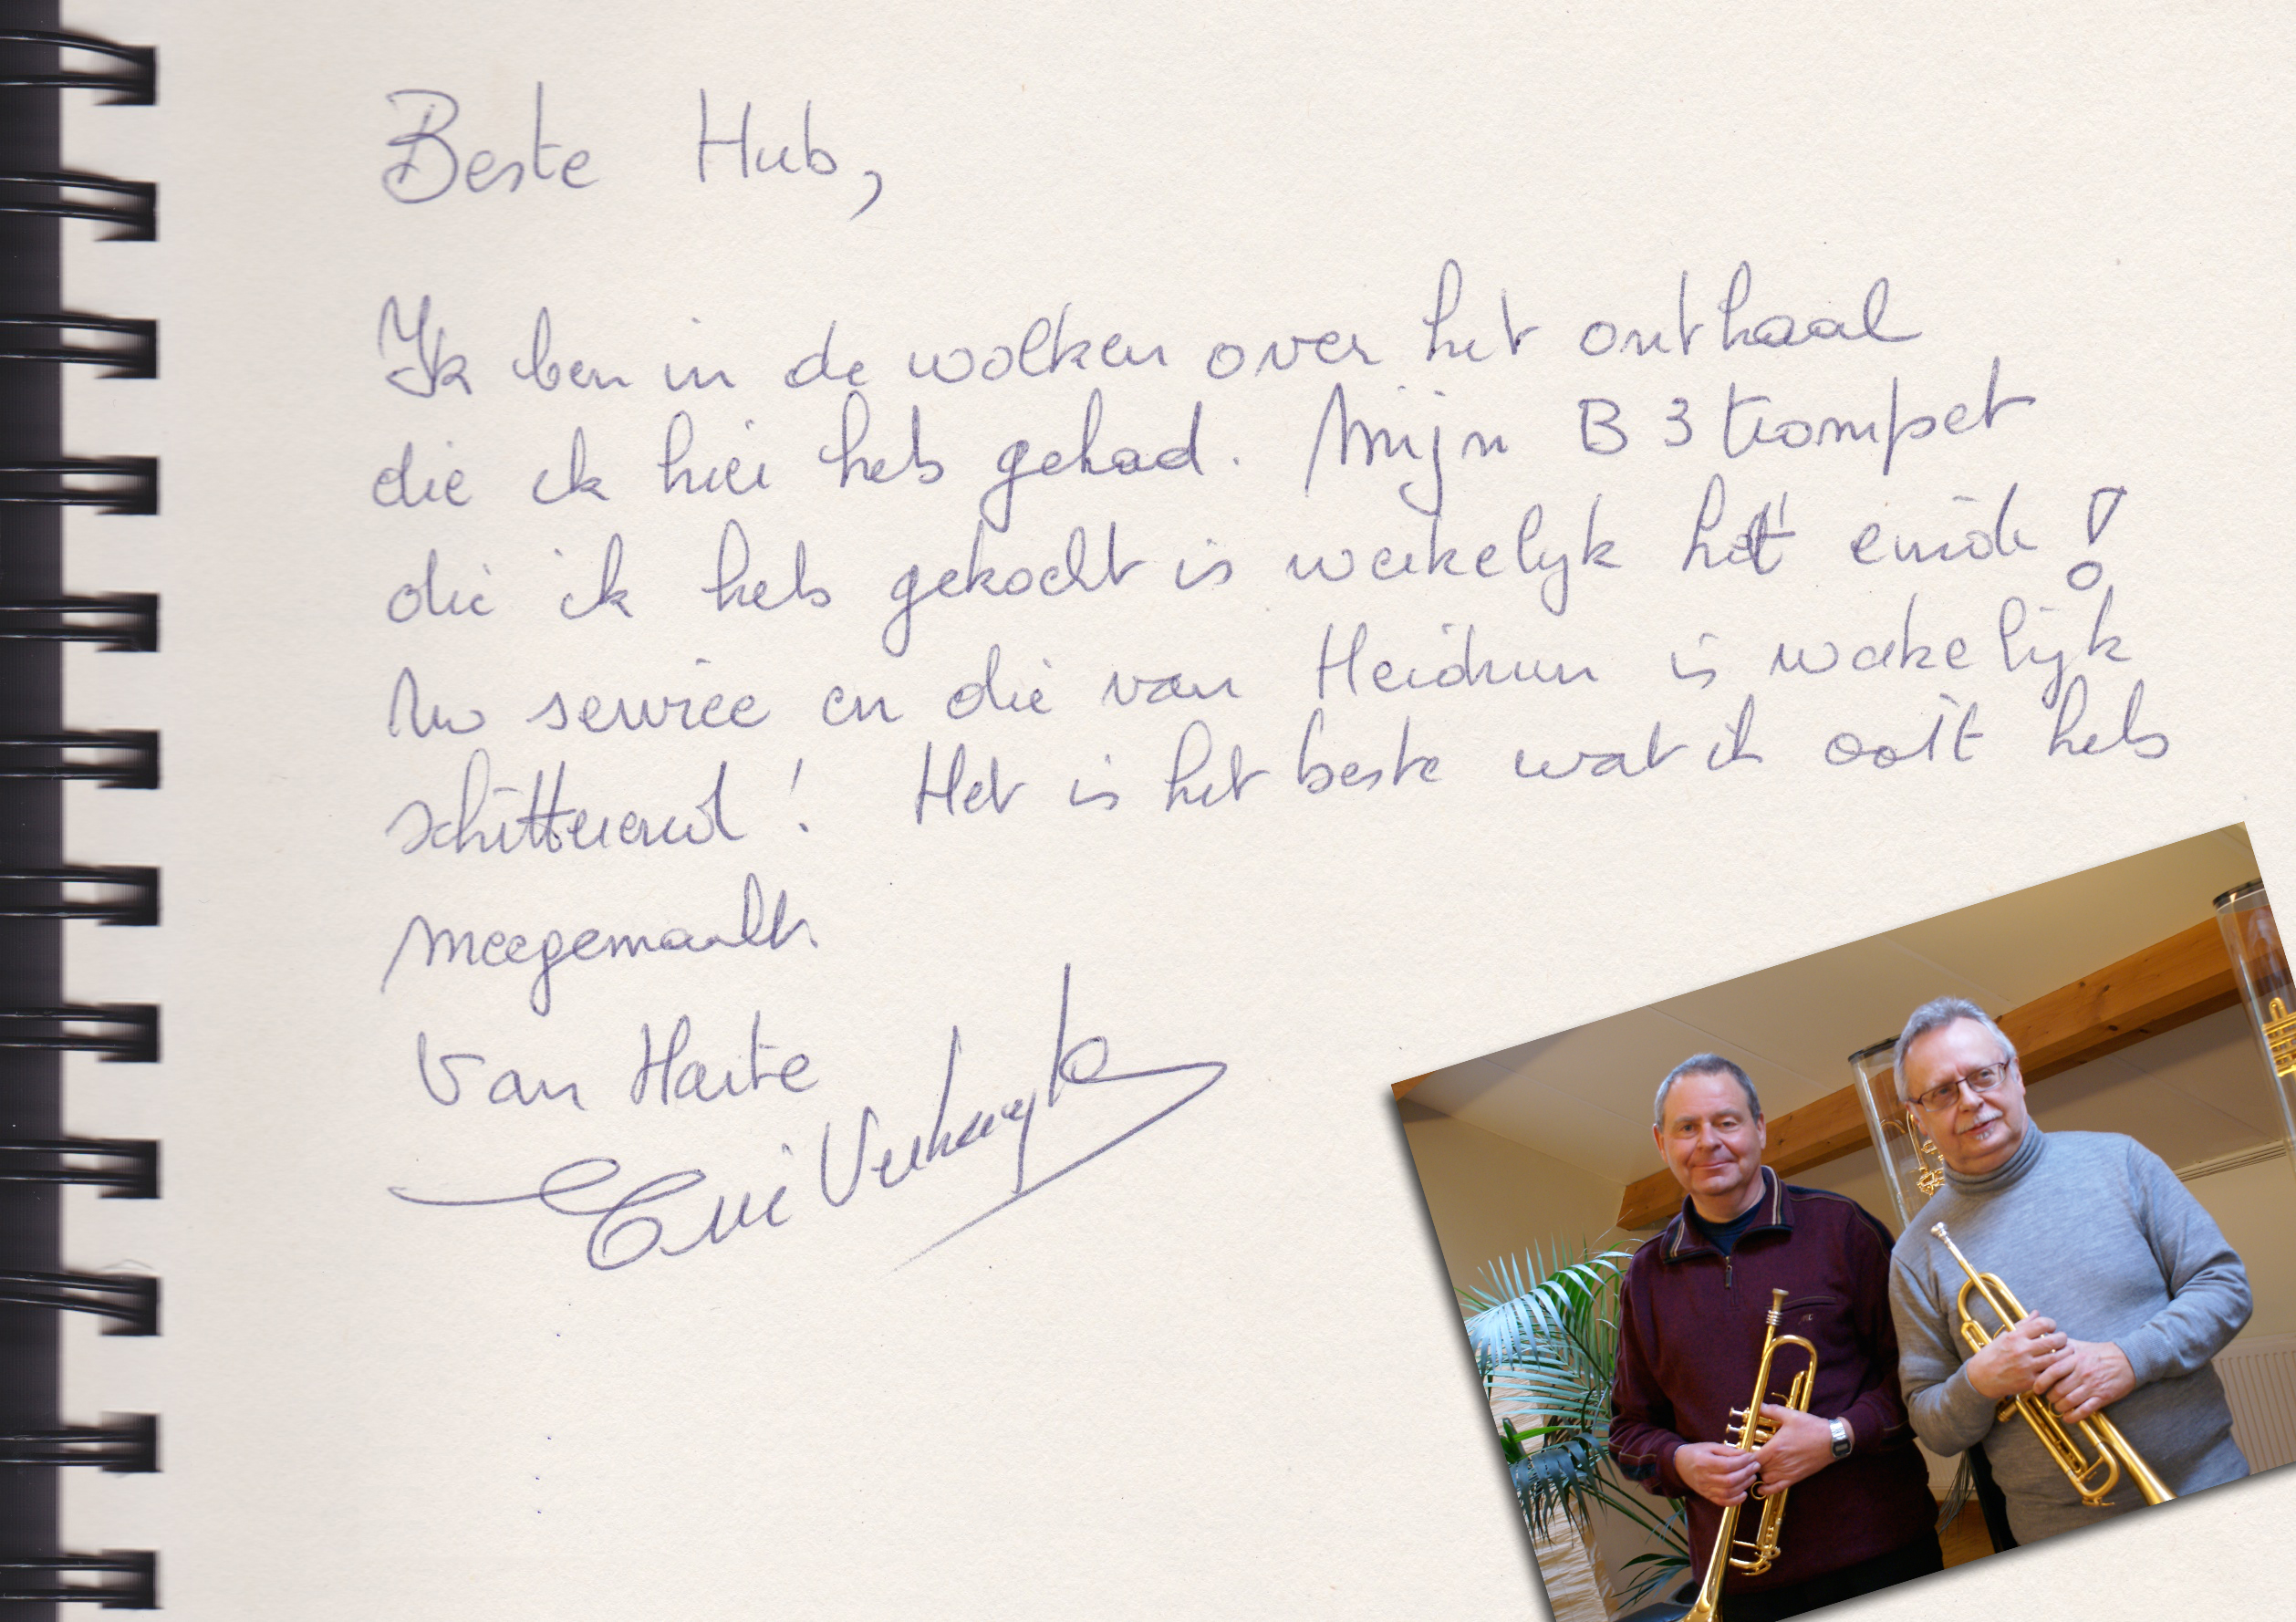 Beste Hub,
Ik ben in de wolken over het onthaal
die ik hier heb gehad. Mijn B 3 trompet
die ik heb gekocht is werkelijk het einde!
Uw service en die van Heidrun is werkelijk
schitterend! Het is het beste wat ik ooit heb
meegemaakt
Van Harte